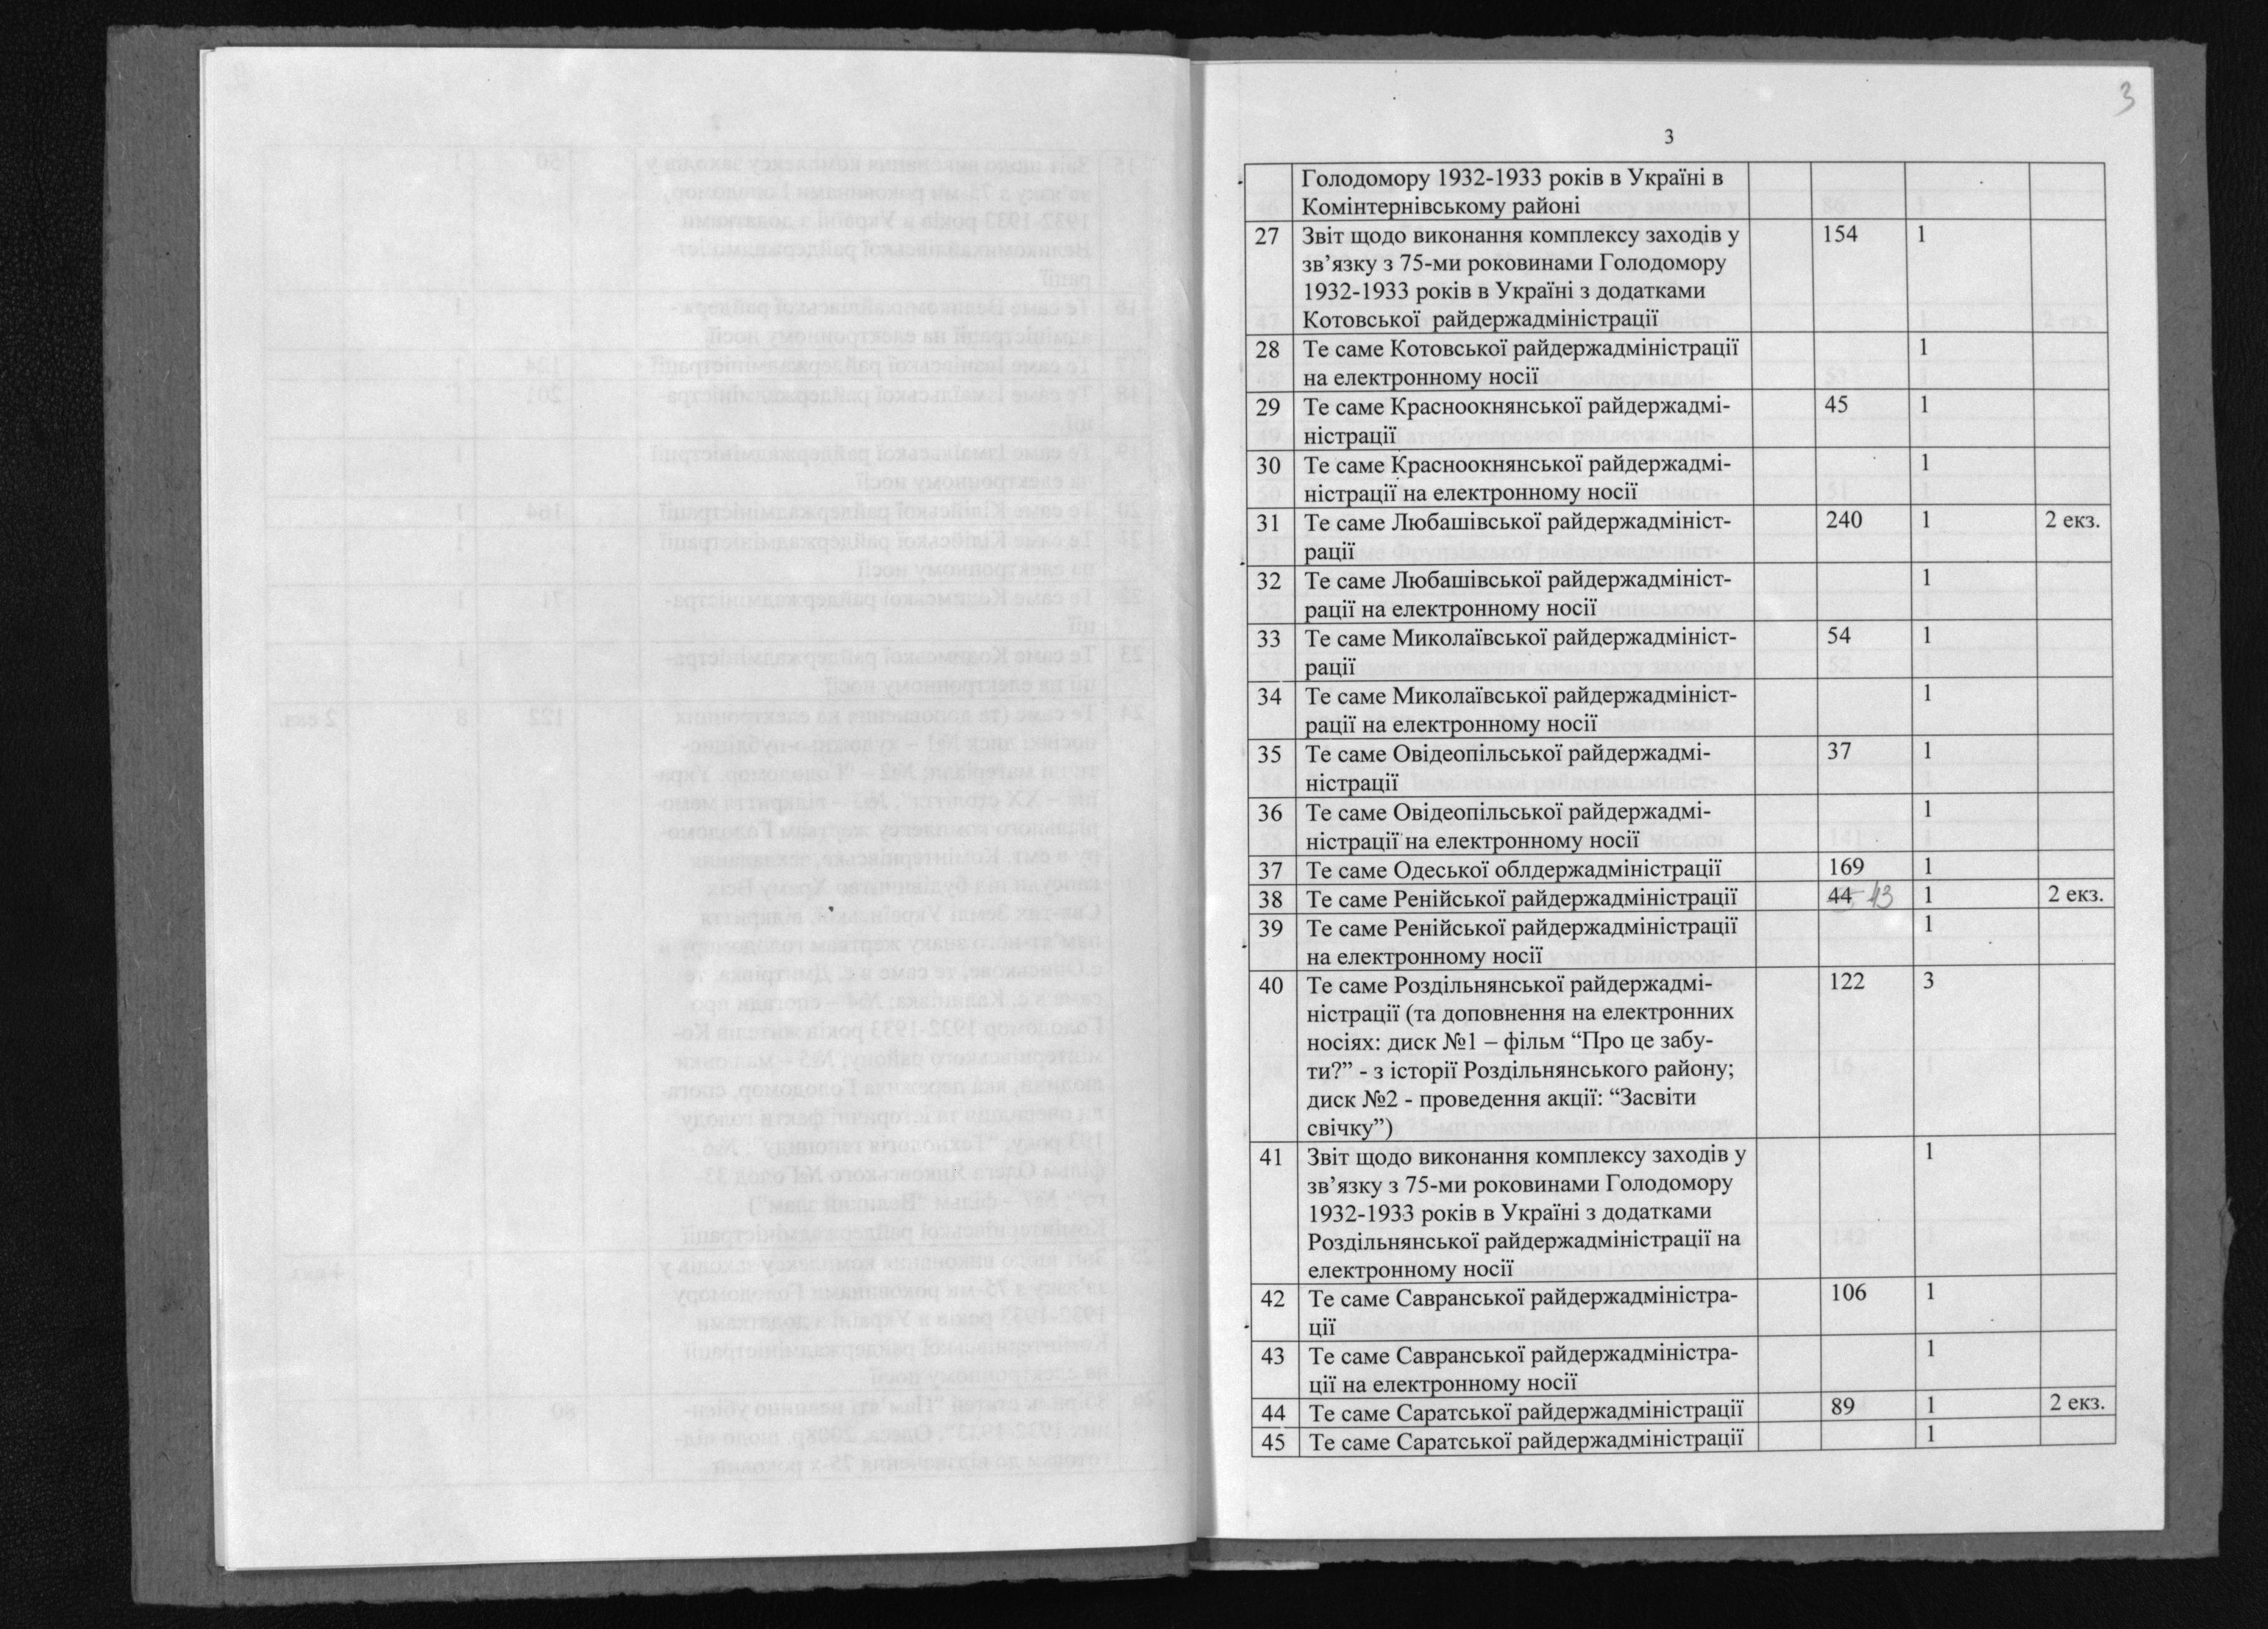 3
3
Голодомору 1932-1933 років в Україні в
Комінтернівському районі
27 Звіт щодо виконання комплексу заходів у 154 1
зв’язку з 75-ми роковинами Голодомору
1932-1933 років в Україні з додатками
Котовської райдержадміністрації
28 Те саме Котовської райдержадміністрації 1
на електронному носії
29 Те саме Красноокнянської райдержадмі- 45 1
ністрації
30 Те саме Красноокнянської райдержадмі- 1
ністрації на електронному носії
31 Те саме Любашівської райдержадмініст- 240 1 2 екз.
рації
32 Те саме Любашівської райдержадмініст- 1
рації на електронному носії
33 Те саме Миколаївської райдержадмініст- 54 1
рації
34 Те саме Миколаївської райдержадмініст- 1
рації на електронному носії
35 Те саме Овідеопільської райдержадмі- 37 1
ністрації
36 Те саме Овідеопільської райдержадмі- 1
ністрації на електронному носії
37 Те саме Одеської облдержадміністрації 169 1
38 Те саме Ренійської райдержадміністрації 44 43 1 2 екз.
39 Те саме Ренійської райдержадміністрації 1
на електронному носії
40 Те саме Роздільнянської райдержадмі- 122 3
ністрації (та доповнення на електронних
носіях: диск №1 – фільм “Про це забу-
ти?” - з історії Роздільнянського району;
диск №2 - проведення акції: “Засвіти
свічку”)
41 Звіт щодо виконання комплексу заходів у 1
зв’язку з 75-ми роковинами Голодомору
1932-1933 років в Україні з додатками
Роздільнянської райдержадміністрації на
електронному носії
42 Те саме Савранської райдержадміністра- 106 1
ції
43 Те саме Савранської райдержадміністра- 1
ції на електронному носії
44 Те саме Саратської райдержадміністрації 89 1 2 екз.
45 Те саме Саратської райдержадміністрації 1